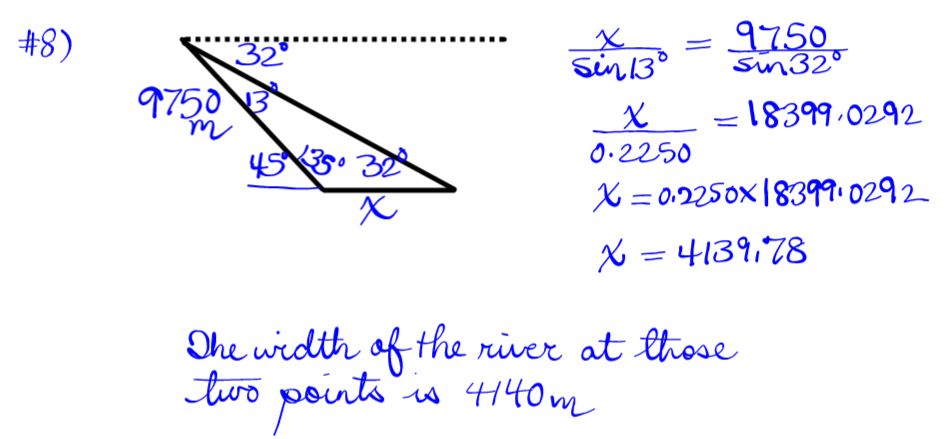 #8)
32°
9750 m
13°
45° 135° 32°
x
x/sin13° = 9750/sin32°
x/0.2250 = 18399.0292
x = 0.2250x18399.0292
x = 4139.78
The width of the river at those
two points is 4140m